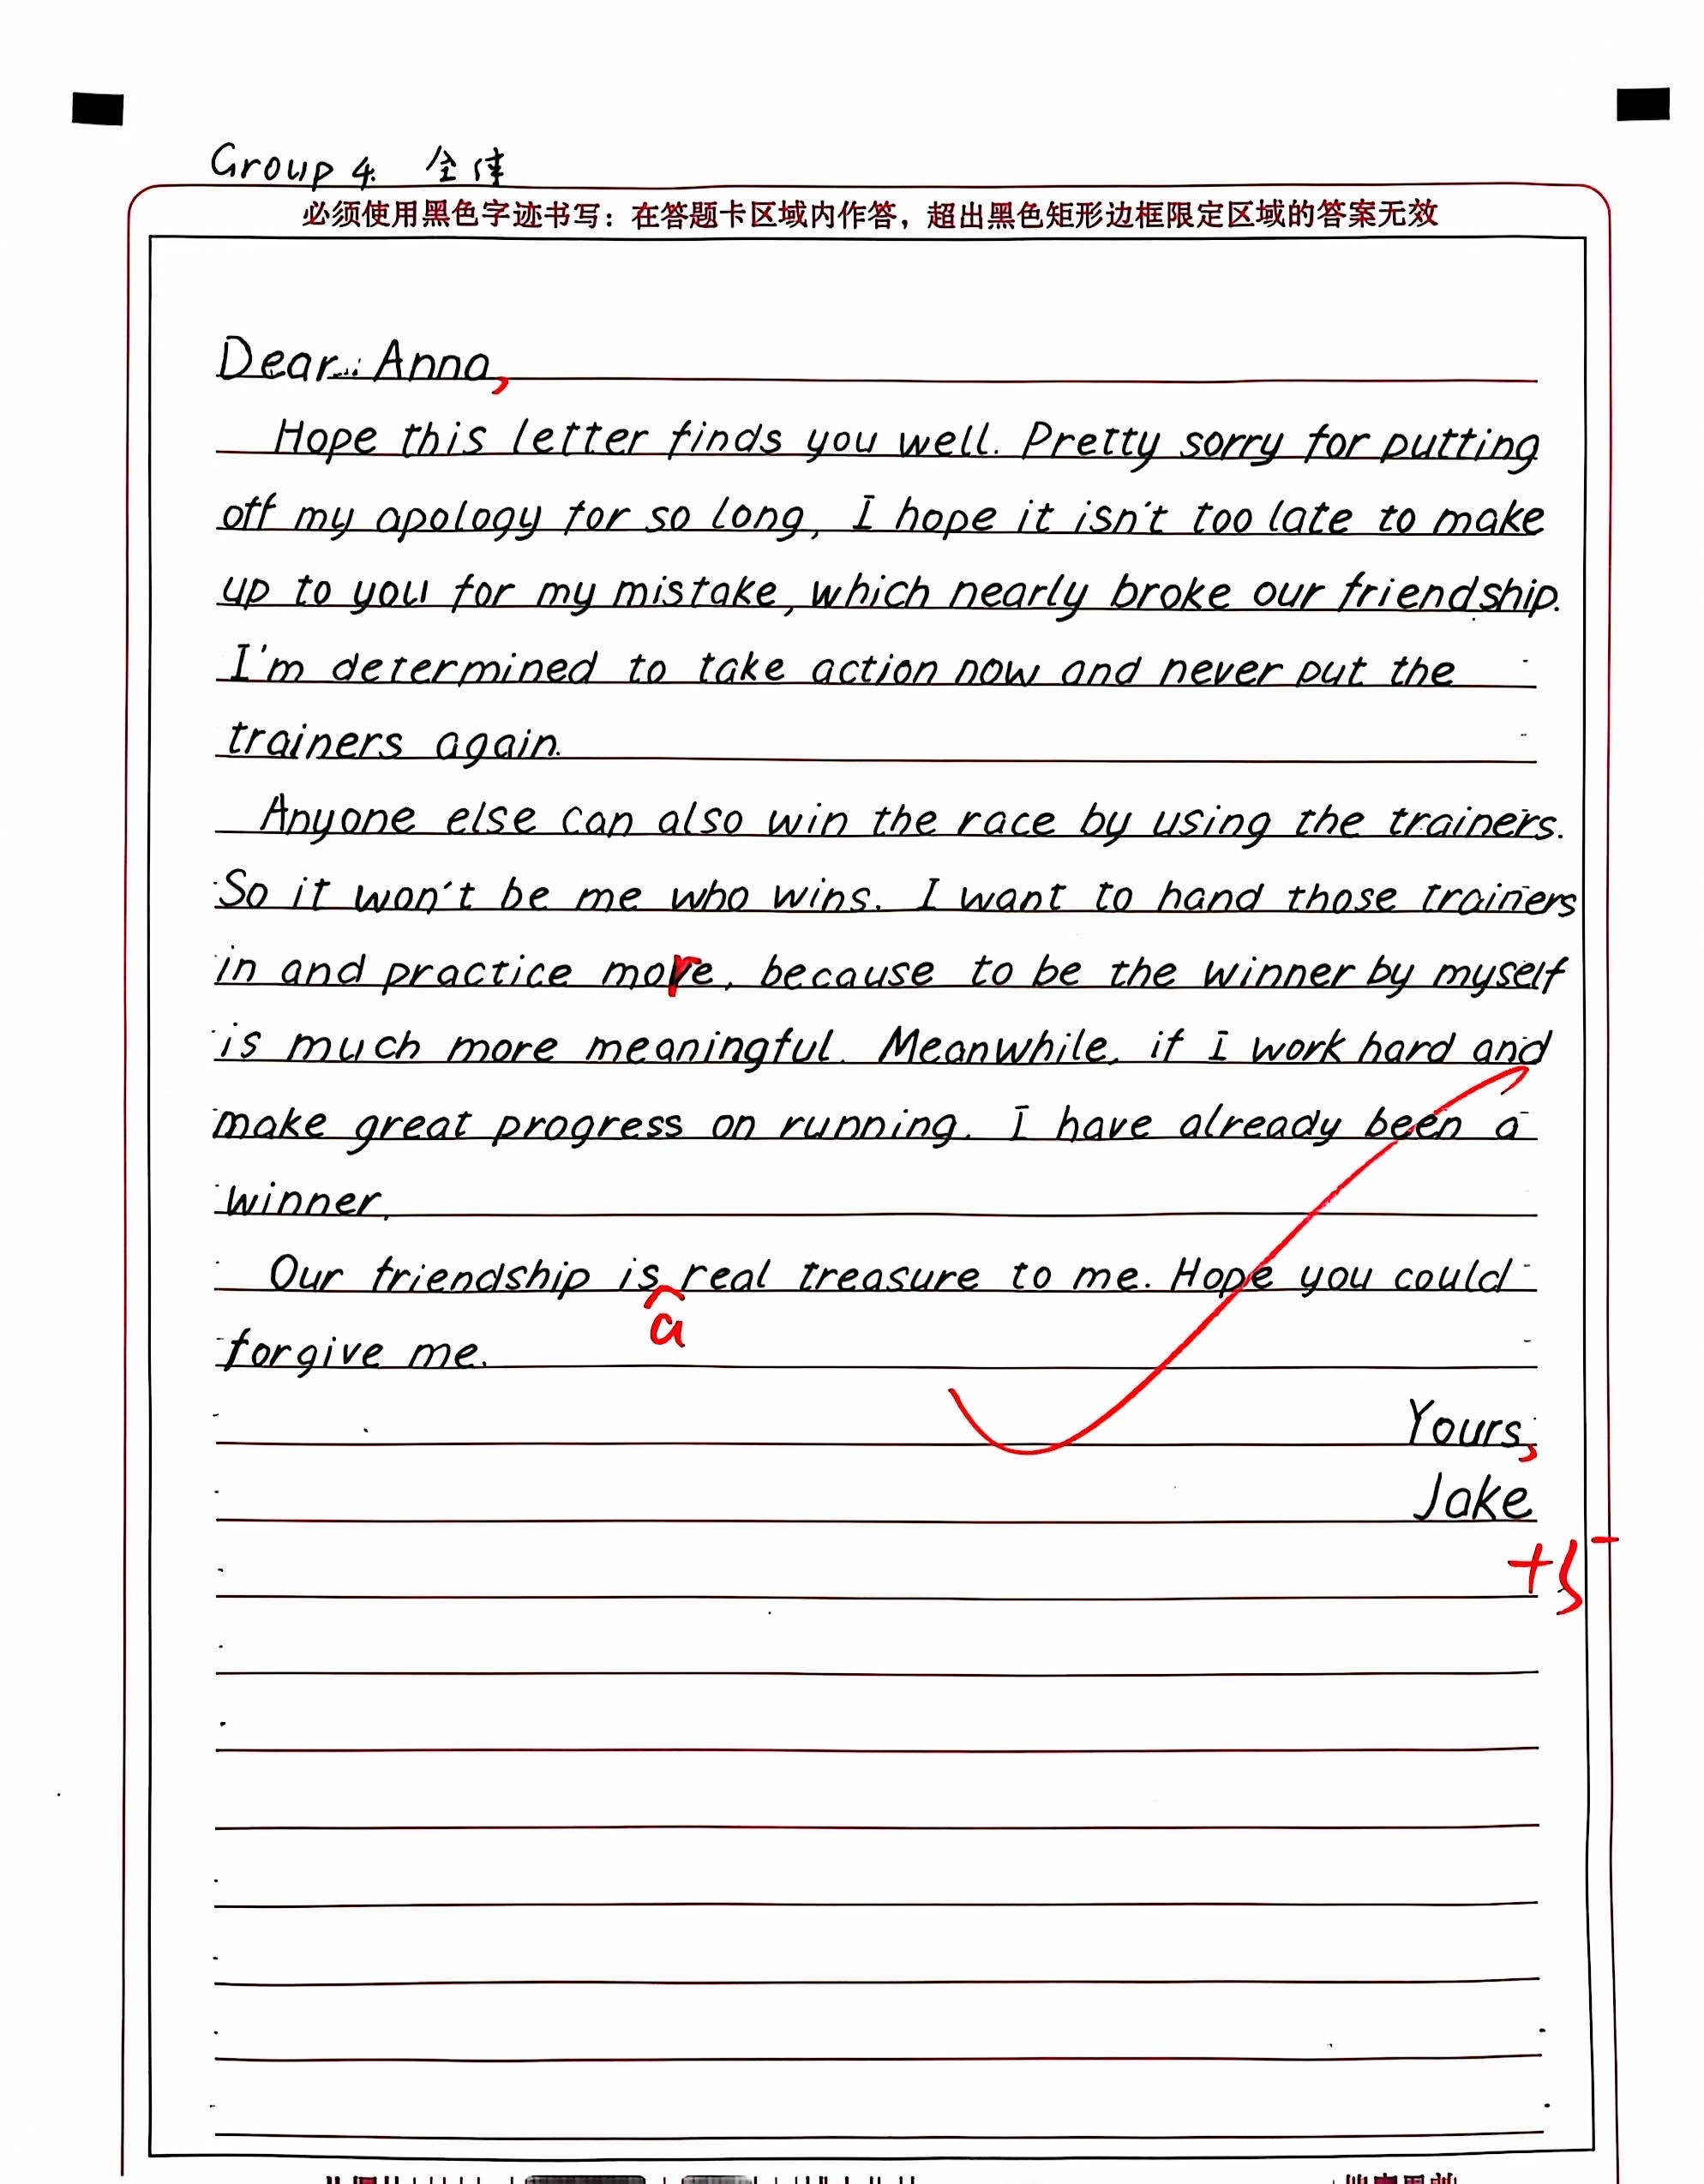 Group 4. 全体
必须使用黑色字迹书写：在答题卡区域内作答，超出黑色矩形边框限定区域的答案无效
Dear Anna,
Hope this letter finds you well. Pretty sorry for putting
off my apology for so long, I hope it isn't too late to make
up to you for my mistake, which nearly broke our friendship.
I'm determined to take action now and never put the
trainers again.
Anyone else can also win the race by using the trainers.
So it won't be me who wins. I want to hand those trainers
in and practice more, because to be the winner by myself
is much more meaningful. Meanwhile, if I work hard and
make great progress on running. I have already been a
winner.
Our friendship is real treasure to me. Hope you could
a
forgive me.
Yours,
Jake
+5